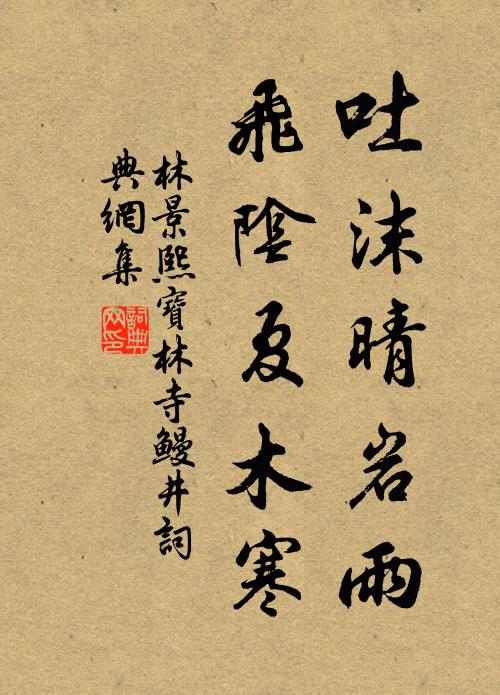 吐沫晴岩雨
飛陰夏木寒
林景熙寶林寺鰻井詞
典網集
詞典
网印